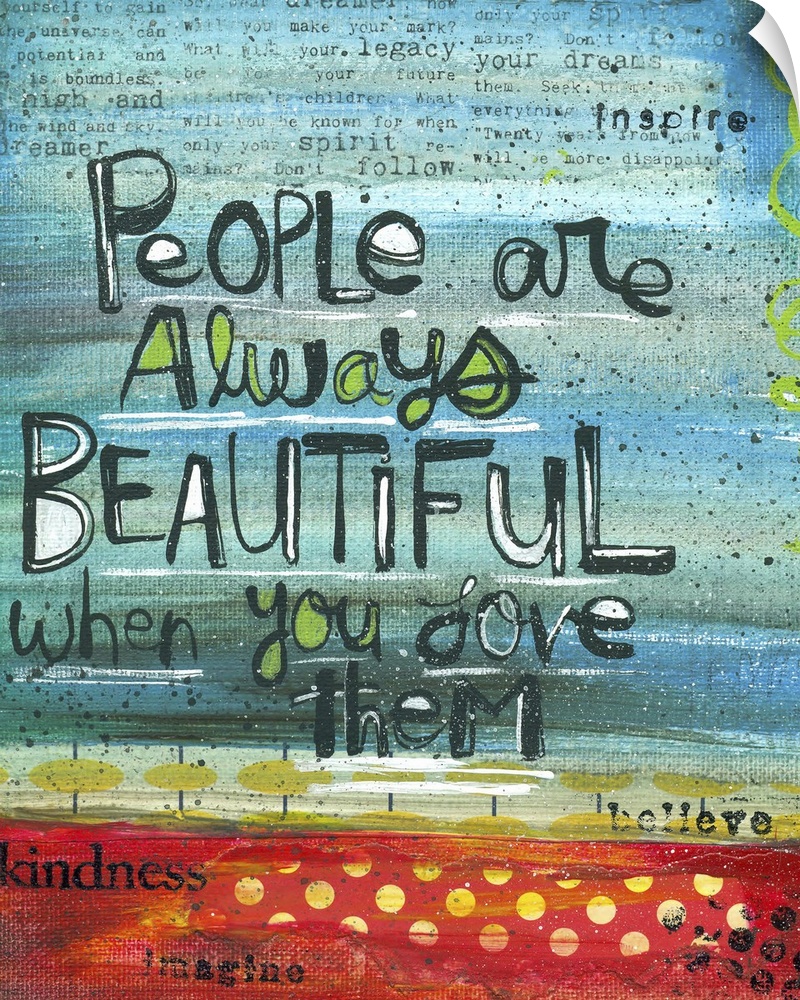 yourself to gain
the universe can
potential and
is boundless.
high and
the wind and sky.
dreamer
dreamer
will you make your mark?
What will your legacy
be for your future
children's children. What
will you be known for when
only your spirit re-
mains? Don't follow
only your spirit
mains? Don't follow
your dreams
them. Seek
everything
"Twenty years from now
will be more disappoin
inspire
PeOPLe are
Always
BEAUTiFuL
when you love
theM
believe
kindness
imagine